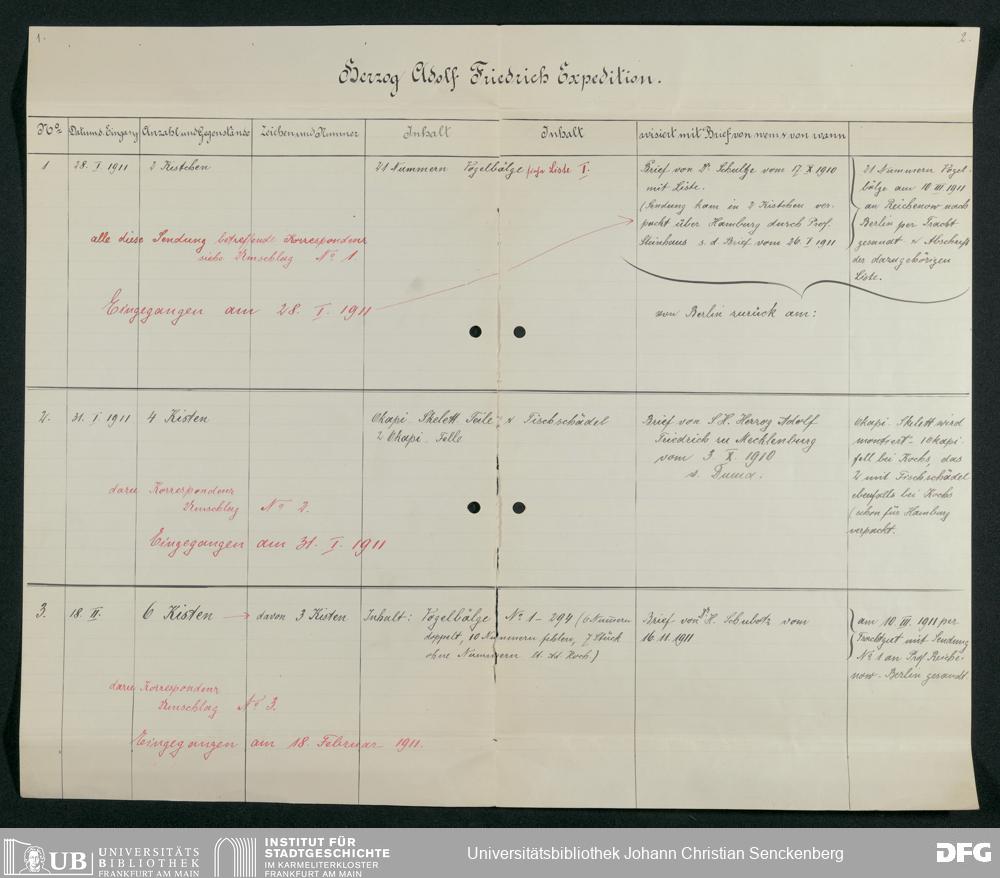 1.
2.
Herzog Adolf Friedrich Expedition.
No.
Datum d. Eingang
Anzahl und Gegenstände
Zeichen und Nummer
Inhalt
Inhalt
avisiert mit Brief von wem & von wann
1
28. I. 1911
2 Kistchen
21 Nummern Vögelbälge siehe Liste I.
Brief von Dr. Schultze vom 17. X 1910
mit Liste.
(Sendung kam in 2 Kistchen ver-
packt über Hamburg durch Prof.
Steinhaus s. d Brief vom 26. I 1911
21 Nummern Vögel-
bälge am 10 III 1911
an Reichenow nach
Berlin per Fracht
gesandt & Abschrift
der dazugehörigen
Liste.
alle diese Sendung betreffende Korrespondenz
siehe Umschlag No 1.
Eingegangen am 28. I. 1911
von Berlin zurück am:
2.
31. I. 1911
4 Kisten
Okapi Skelett Teile & Fischschädel
2 Okapi-Felle
Brief von S. H. Herzog Adolf
Friedrich zu Mecklenburg
vom 3 X. 1910
s. Duma.
Okapi-Skelett wird
montiert - 1 Okapi
fell bei Kochs, das
2/ mit Fischschädel
ebenfalls bei Kochs
(schon für Hamburg
verpackt.
dazu Korrespondenz
Umschlag No 2.
Eingegangen am 31. I. 1911
3.
18. II.
6 Kisten
davon 3 Kisten
Inhalt: Vogelbälge No 1 - 294 (6 Nummern
doppelt, 10 Nummern fehlen, 7 Stück
ohne Nummern lt. Ad. Koch.)
Brief von Dr. H. Schubotz vom
16. 11. 1911
am 10 III. 1911 per
Frachtgut mit Sendung
No 1 an Prof. Reiche-
now - Berlin gesandt.
dazu Korrespondenz
Umschlag No 3.
Eingegangen am 18. Februar 1911.
UB
UNIVERSITÄTS
BIBLIOTHEK
FRANKFURT AM MAIN
INSTITUT FÜR
STADTGESCHICHTE
IM KARMELITERKLOSTER
FRANKFURT AM MAIN
Universitätsbibliothek Johann Christian Senckenberg
DFG